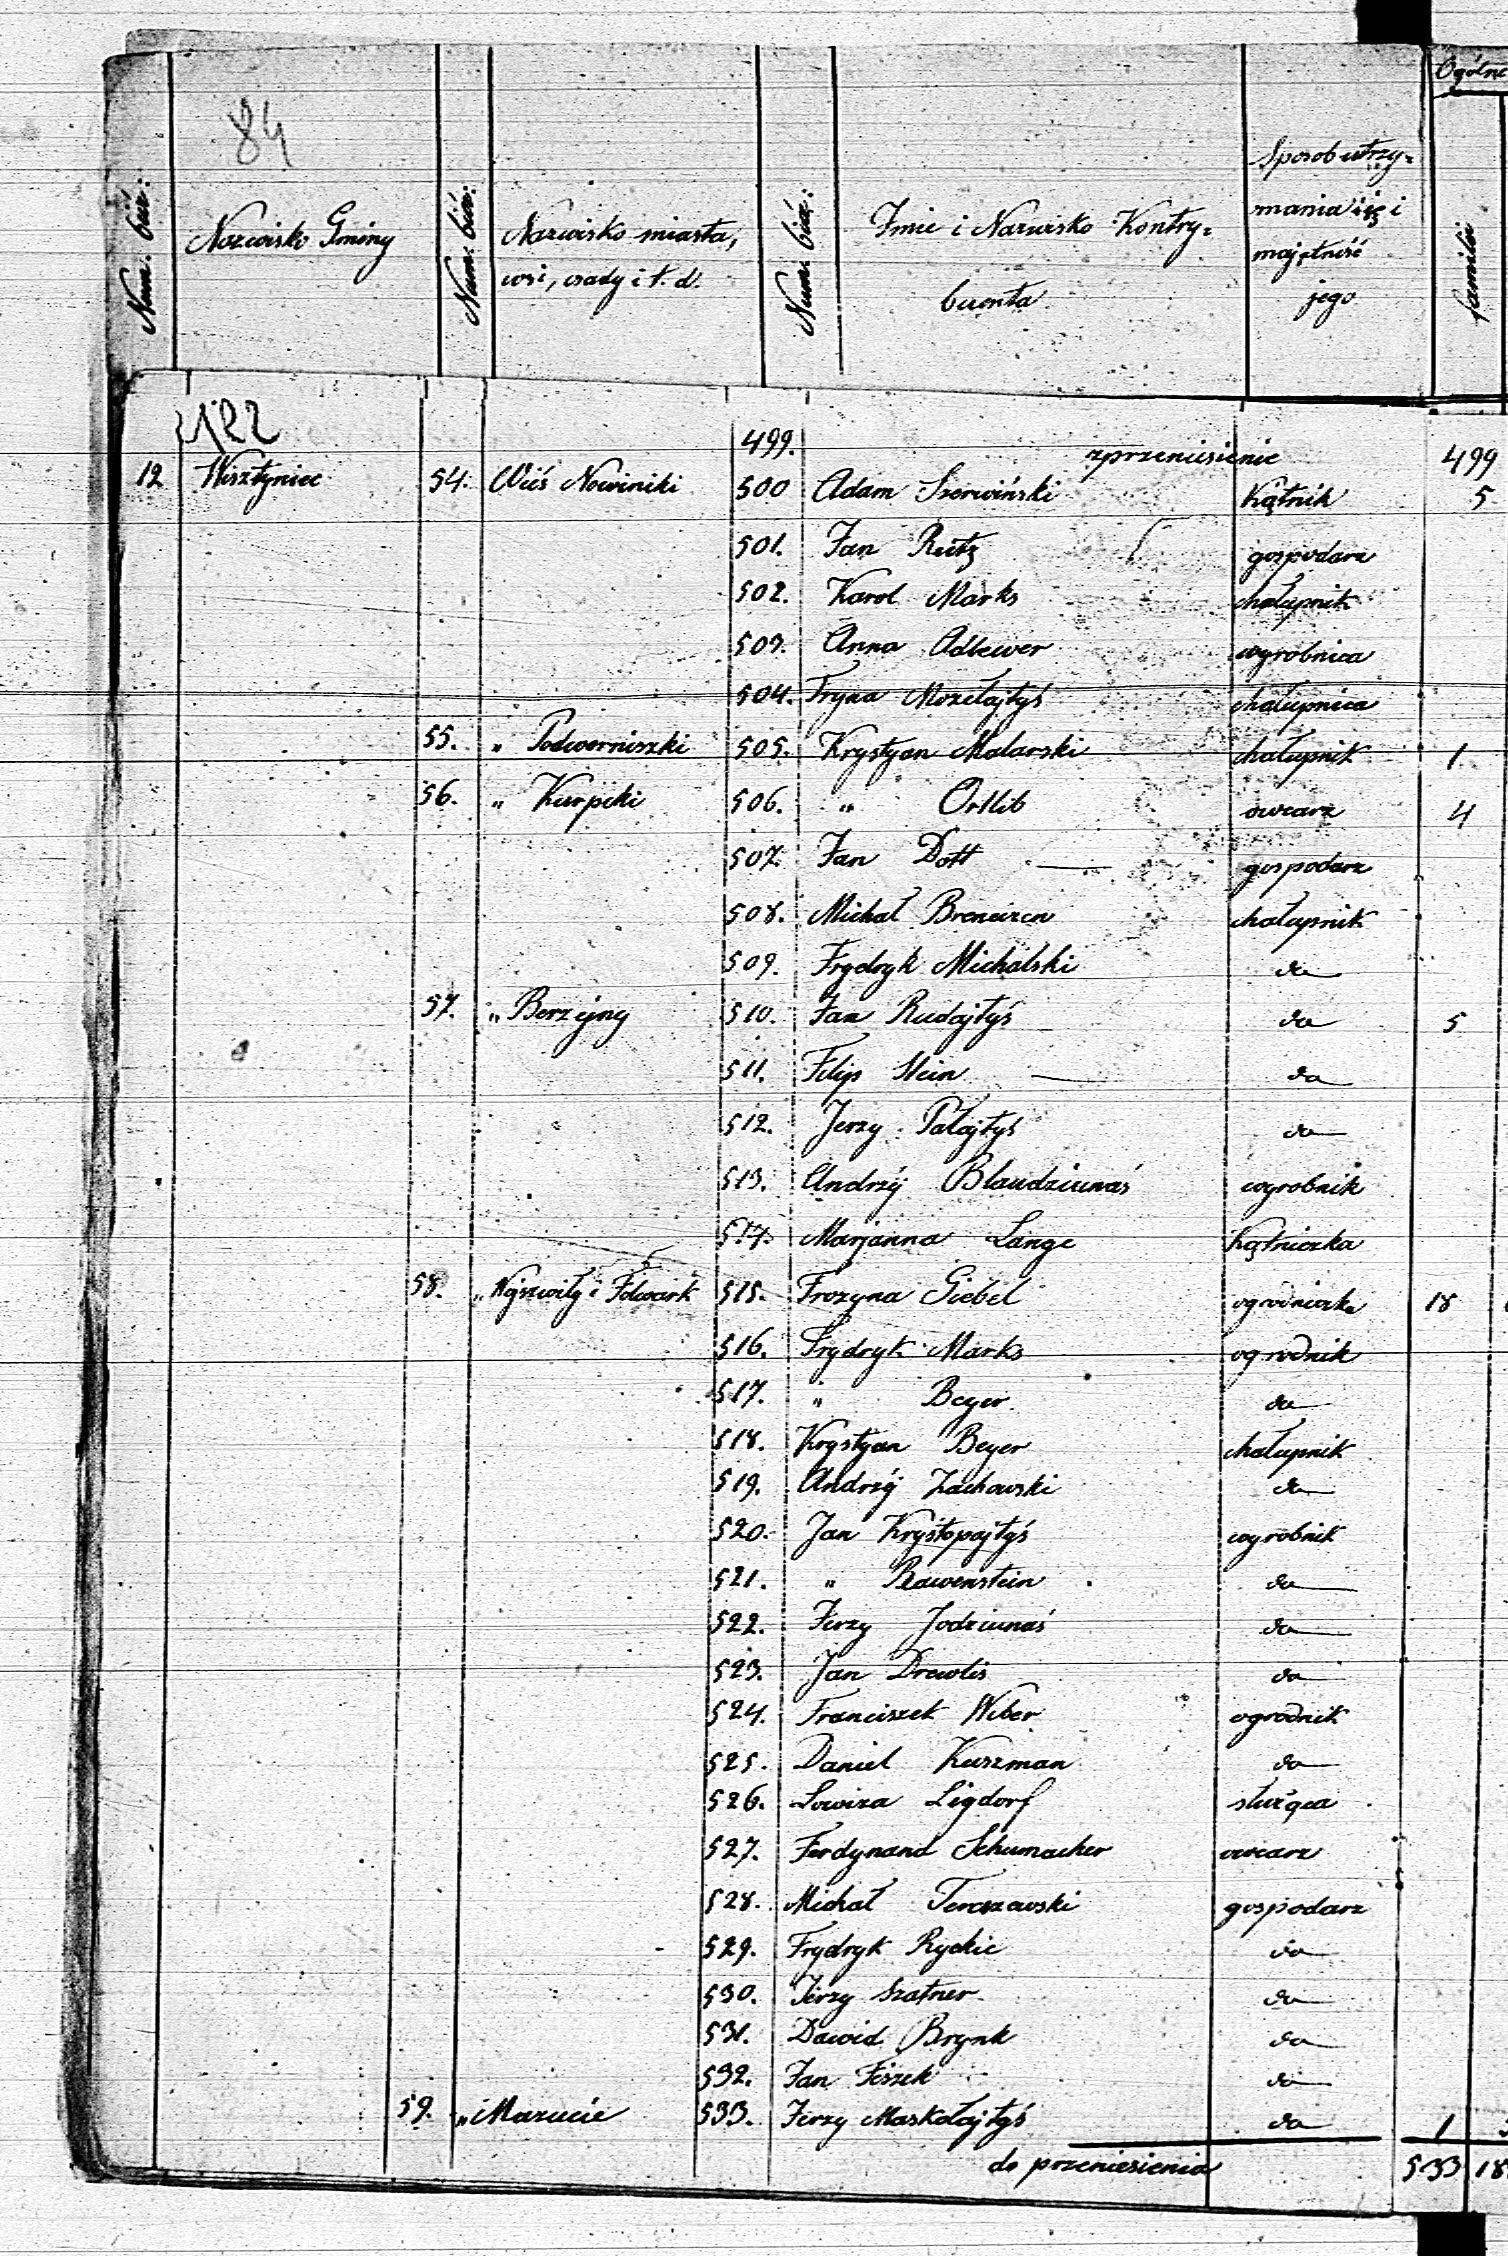 84
Ogólne
Num. bież:
Nazwisko Gminy
Num: bież:
Nazwisko miasta,
wsi, osady i t. d.
Num: bież:
Imie i Nazwisko Kontry=
buenta
Sposob utrzy=
mania się i
majętność
jego
familii
122
499. zprzeniesienie 499
12 Wisztyniec 54. Wieś Nowiniki 500 Adam Szerwiński Kątnik 5
501. Jan Rutz gospodarz
502. Karol Marks chałupnik
503. Anna wyrobnica
504. chałupnica
55. " Podworniszki 505. Krystyan Malarski chałupnik 1
56. " Kurpiki 506. " Ortlib owczarz 4
507. Jan Dott gospodarz
508. Michał chałupnik
509. Frydryk Michalski do
57. " Berzyny 510. Jan Rudajtyś do 5
511. Filip Stein do
512. Jerzy Pałajtyś do
513. Andrzy Blaudziunaś wyrobnik
514. Marjanna Lange Kątniczka
58. " i Folwark 515. Frozyna Giebel ogrodniczka 18
516. Frydryk Marks ogrodnik
517. " Beyer do
518. Krystyan Beyer chałupnik
519. Andrzy Zachowski do
520. Jan Kryśtopajtyś wyrobnik
521. " Rawenstein do
522. Jerzy Jodziunaś do
523. Jan Drewlis do
524. Franciszek Weber ogrodnik
525. Daniel Kuszman do
526. Lowiza Ligdorf służąca
527. Ferdynand Schumacher owczarz
528. Michał gospodarz
529. Frydryk Ryckie do
530. Jerzy Szatner do
531. Dawid Brynk do
532. Jan Fiszek do
59. " Mazucie 533. Jerzy Maskołajtyś do 1
do przeniesienia 533 18